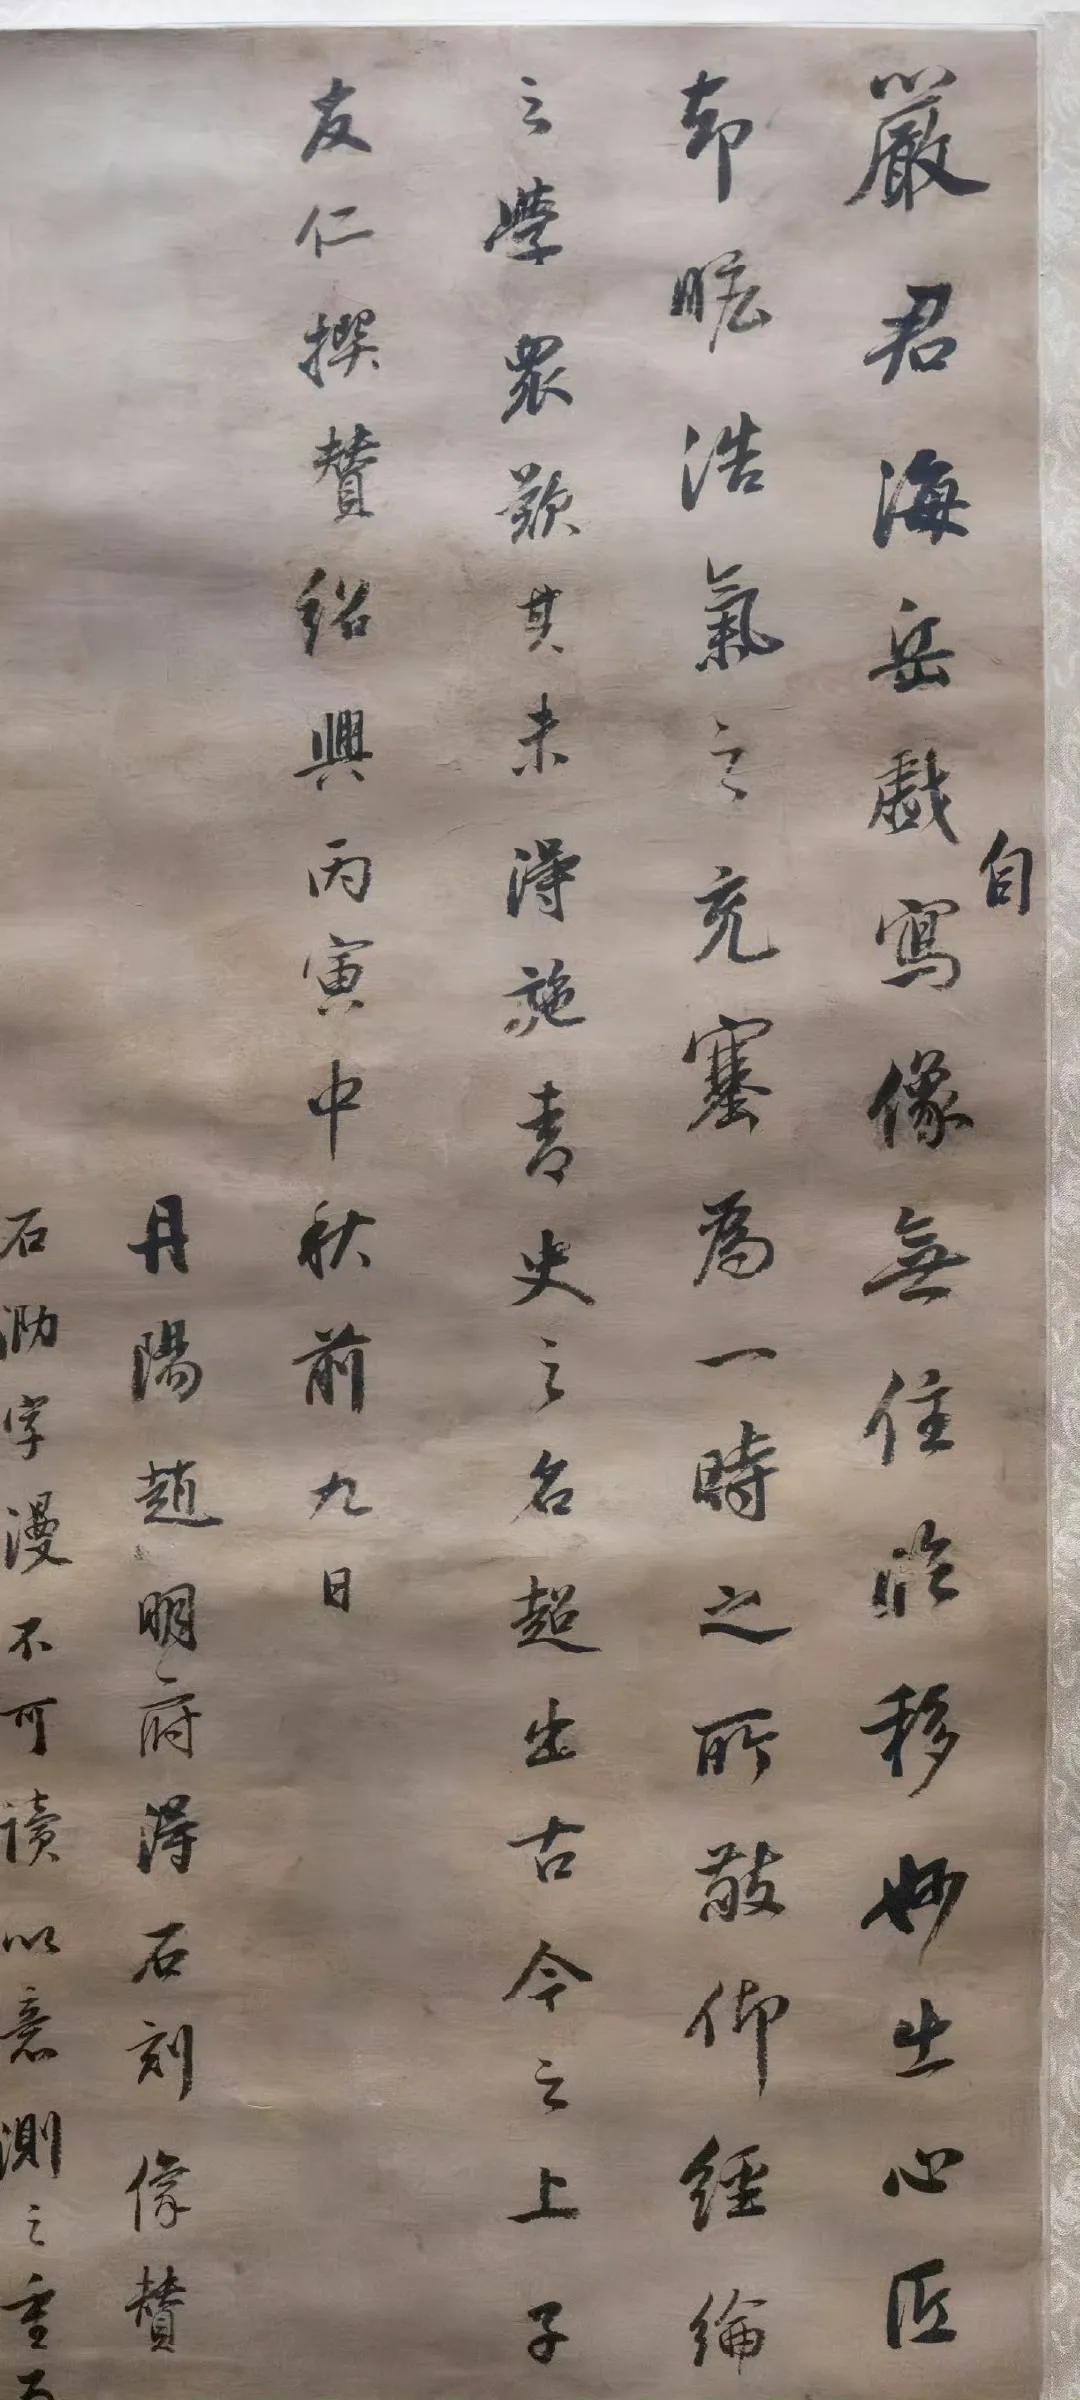 嚴君海岳戲寫像無住於移妙出心匠
自
却瞻浩氣之充塞為一時之所敬仰經綸
之學眾歎其未得施青史之名超出古今之上子
友仁撰贊紹興丙寅中秋前九日
丹陽趙明府得石刻像贊
石泐字漫不可讀以意測之重百